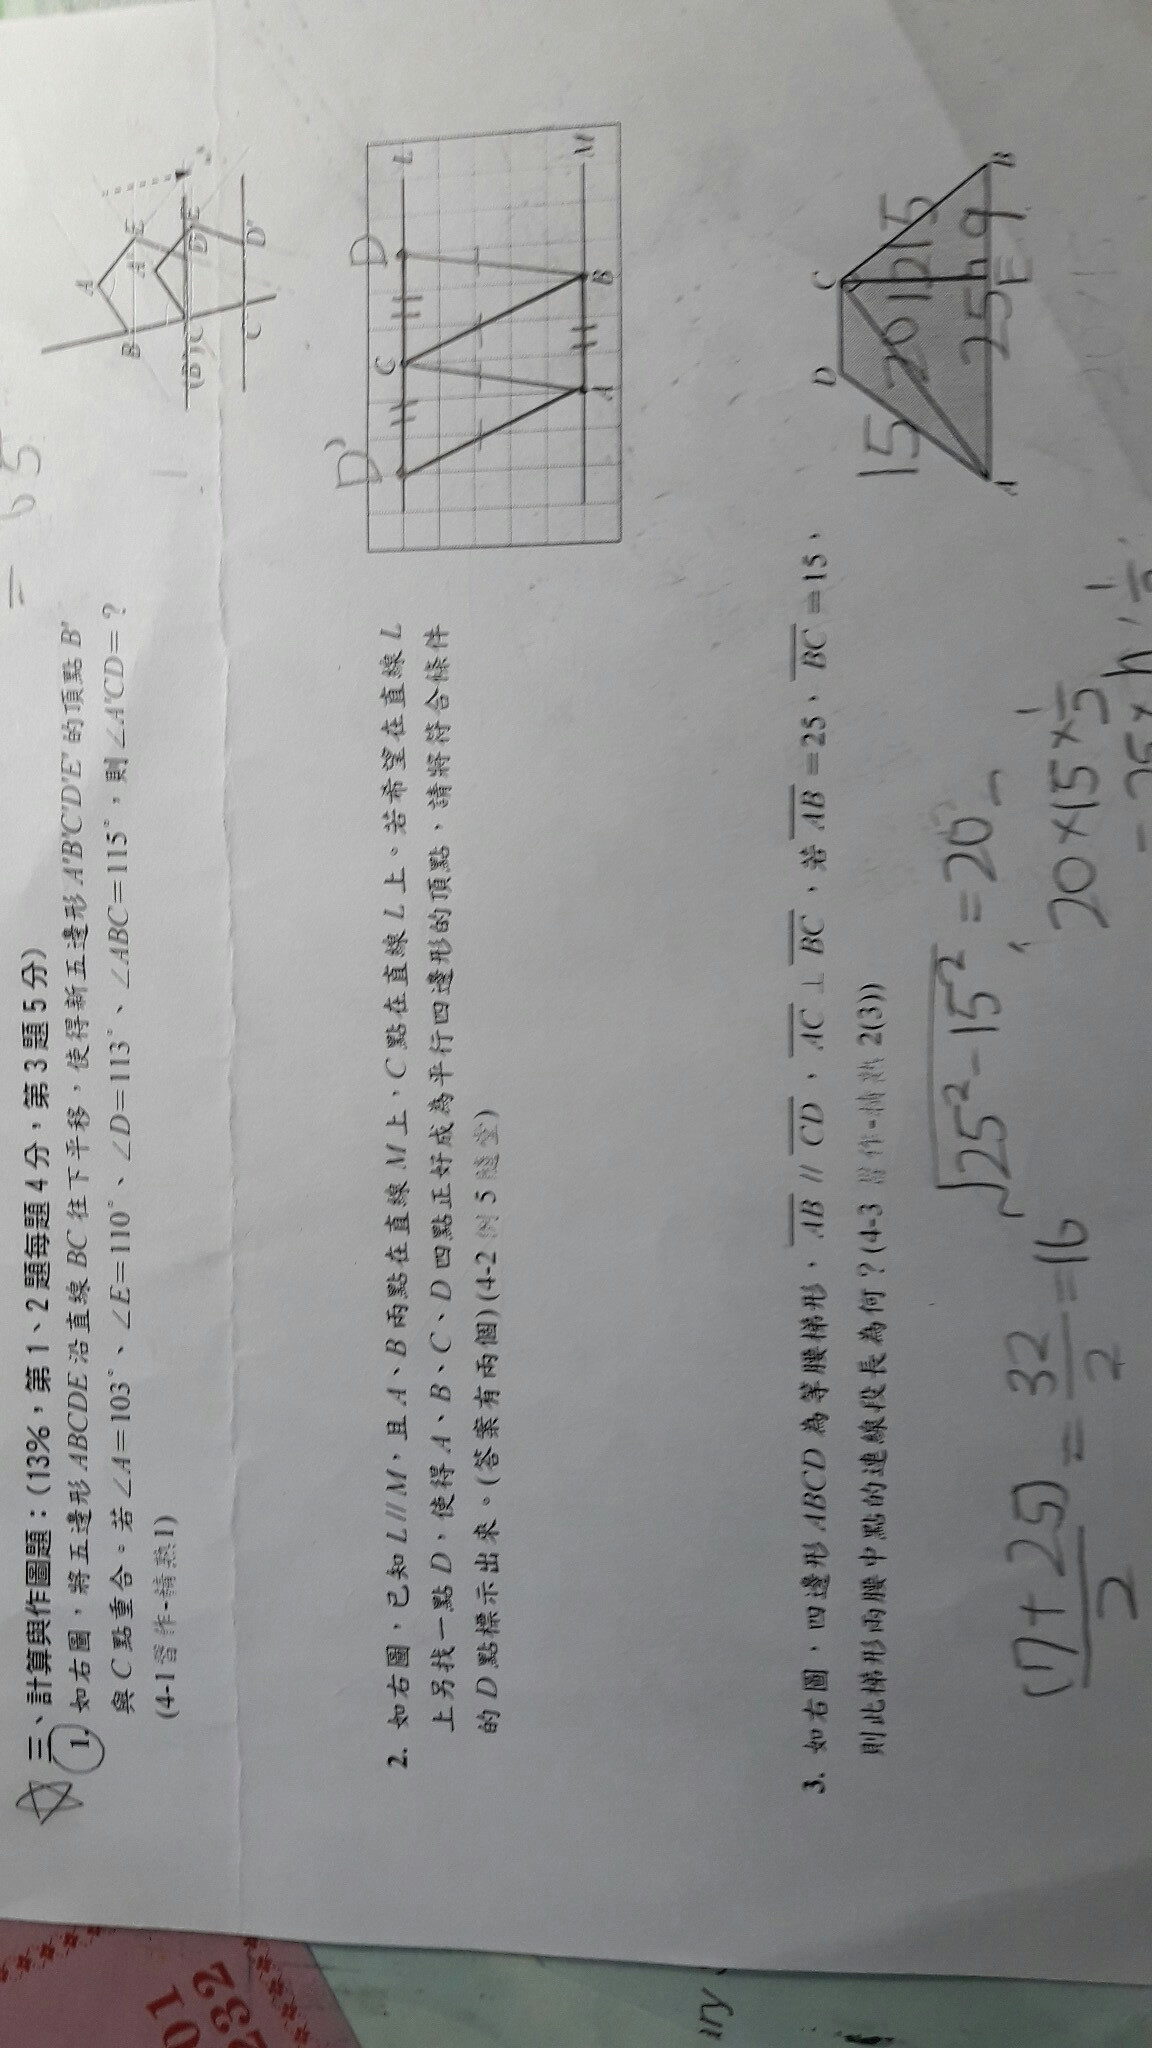 = 65
三、計算與作圖題：(13%，第1、2題每題4分，第3題5分)
1. 如右圖，將五邊形ABCDE沿直線BC往下平移，使得新五邊形A'B'C'D'E'的頂點B'
與C點重合。若∠A=103°、∠E=110°、∠D=113°、∠ABC=115°，則∠A'CD=？
(4-1習作-精熟1)
A
B
E
A'
(B')C
D
E'
C'
D'
2. 如右圖，已知L//M，且A、B兩點在直線M上，C點在直線L上。若希望在直線L
上另找一點D，使得A、B、C、D四點正好成為平行四邊形的頂點，請將符合條件
的D點標示出來。(答案有兩個)(4-2例5隨堂)
D'
C
D
L
A
B
M
3. 如右圖，四邊形ABCD為等腰梯形，AB//CD，AC⊥BC，若AB=25、BC=15，
則此梯形兩腰中點的連線段長為何？(4-3習作-精熟2(3))
D
C
15
20
12
15
25
h
9
A
E
B
√25²-15² = 20
(7+25)/2 = 32/2 = 16
20×15×1/2
= 25×h×1/2
ıry
01
232